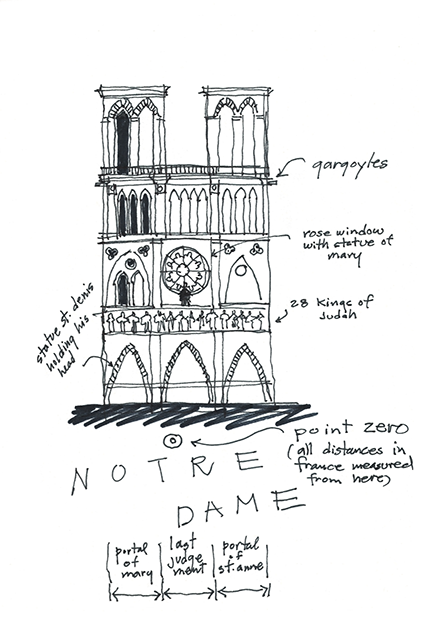 gargoyles
rose window
with statue of
mary
28 kings of
Judah
statue st. denis
holding his
head
point zero
(all distances in
france measured
from here)
NOTRE
DAME
portal
of
mary
last
judge
ment
portal
of
st. anne